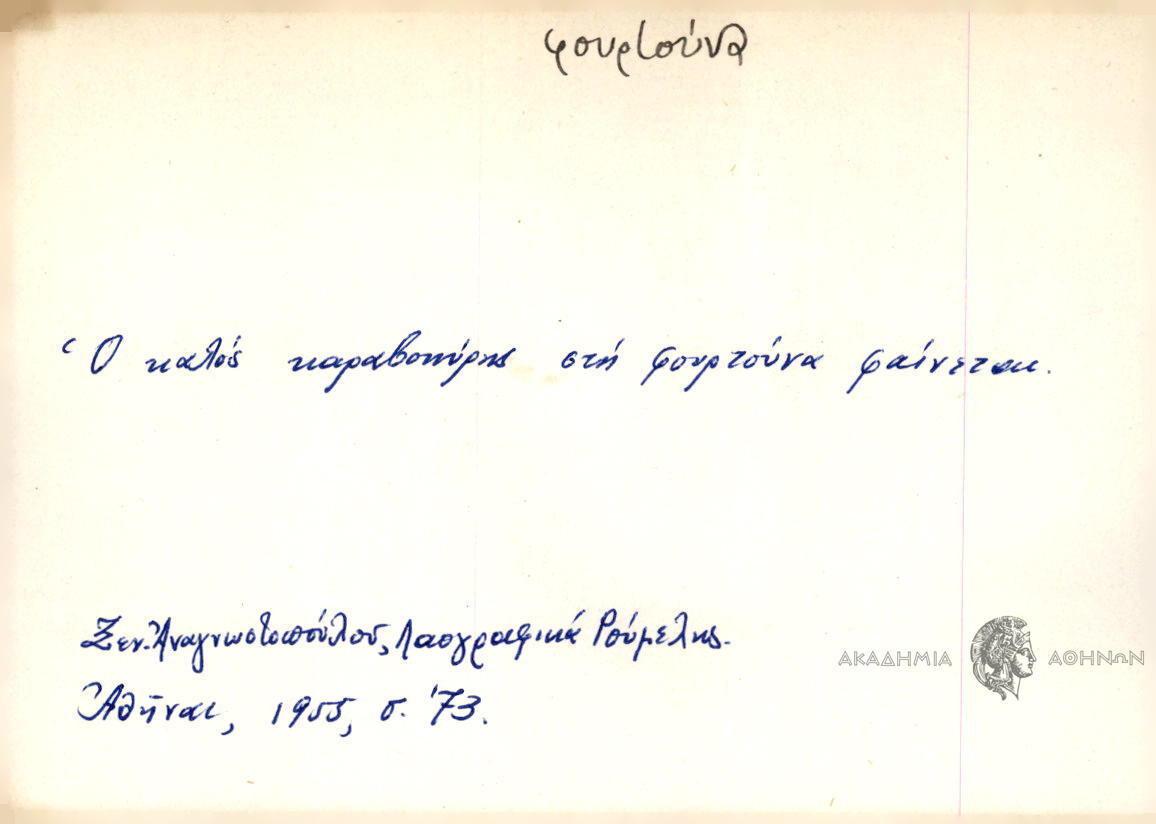 φουρτούνα
Ὁ καλός καραβοκύρης στή φουρτούνα φαίνεται.
Ξεν. Ἀναγνωστοπούλου, Λαογραφικά Ρούμελης.
ΑΚΑΔΗΜΙΑ ΑΘΗΝΩΝ
Ἀθῆναι, 1955, σ. 73.